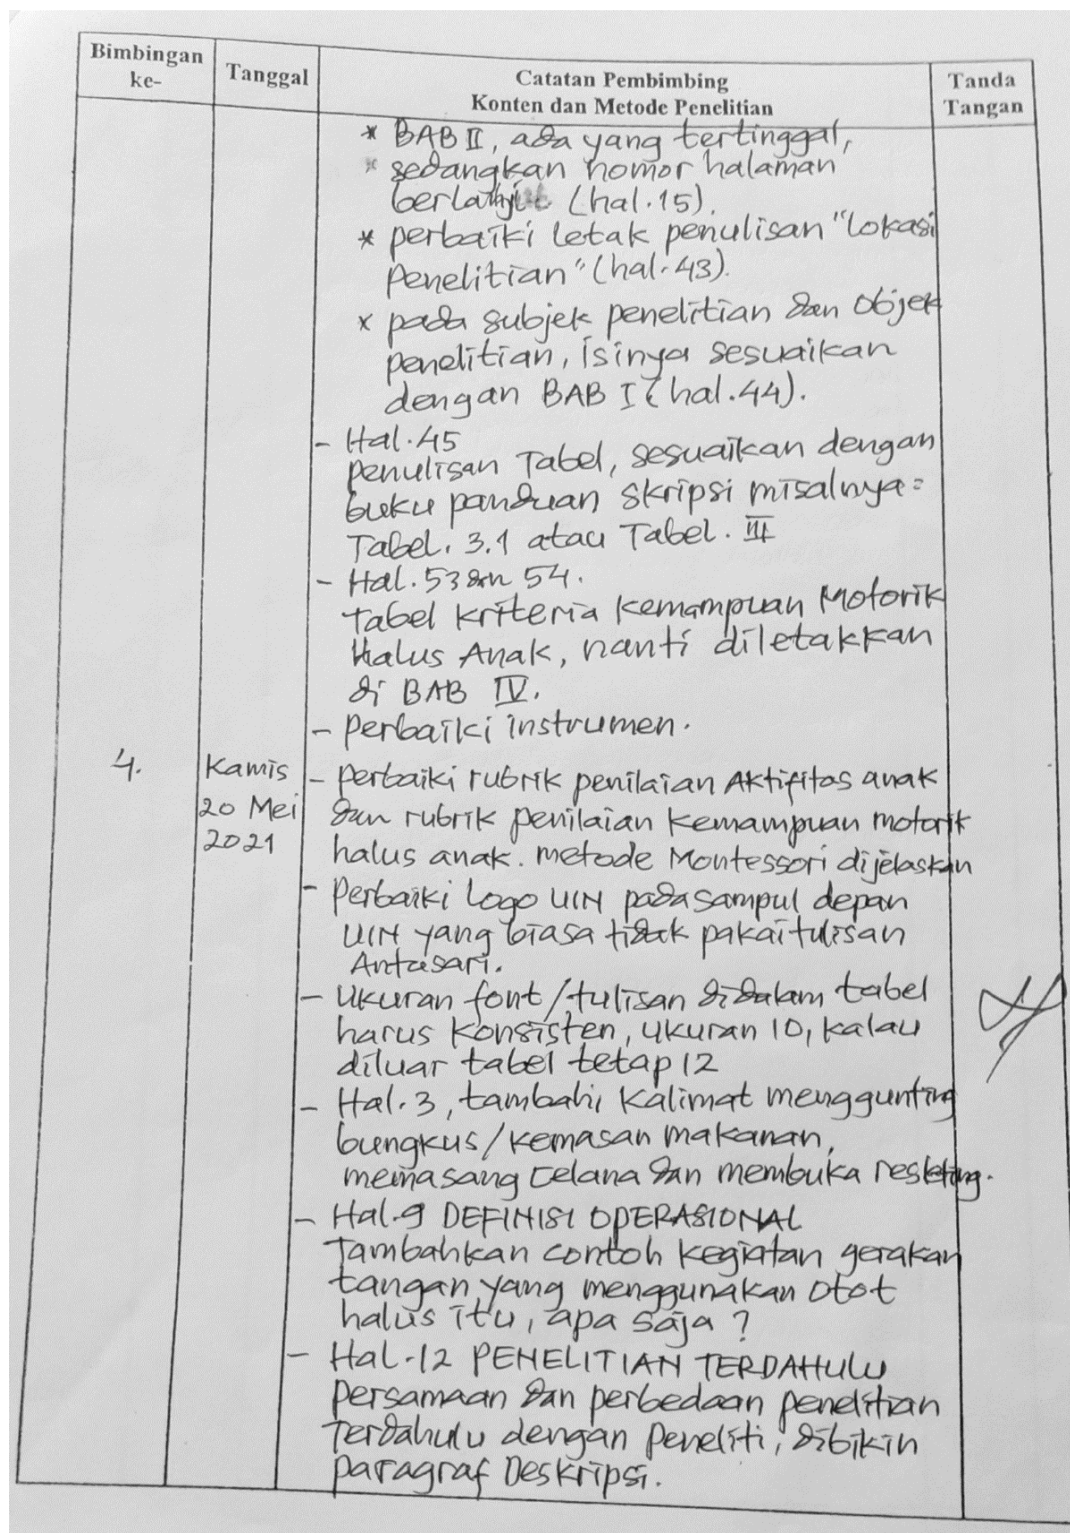 Bimbingan ke-
Tanggal
Catatan Pembimbing
Konten dan Metode Penelitian
Tanda Tangan
* BAB II, ada yang tertinggal,
* sedangkan nomor halaman
berlanjut (hal.15).
* perbaiki letak penulisan "Lokasi
Penelitian" (hal.43).
x pada subjek penelitian dan objek
penelitian, isinya sesuaikan
dengan BAB I (hal.44).
- Hal.45
penulisan Tabel, sesuaikan dengan
buku panduan skripsi misalnya:
Tabel. 3.1 atau Tabel. III
- Hal. 53 dan 54.
Tabel kriteria kemampuan Motorik
Halus Anak, nanti diletakkan
di BAB IV.
- Perbaiki instrumen.
4.
Kamis
20 Mei
2021
- perbaiki rubrik penilaian Aktifitas anak
dan rubrik penilaian kemampuan motorik
halus anak. metode Montessori dijelaskan
- Perbaiki Logo UIN pada sampul depan
UIN yang biasa tidak pakai tulisan
Antasari.
- Ukuran font/tulisan didalam tabel
harus konsisten, ukuran 10, kalau
diluar tabel tetap 12
- Hal.3, tambahi kalimat menggunting
bungkus/kemasan makanan,
memasang celana dan membuka resleting.
- Hal.9 DEFINISI OPERASIONAL
Tambahkan contoh kegiatan gerakan
tangan yang menggunakan otot
halus itu, apa saja?
- Hal.12 PENELITIAN TERDAHULU
Persamaan dan perbedaan penelitian
Terdahulu dengan Peneliti, dibikin
Paragraf Deskripsi.